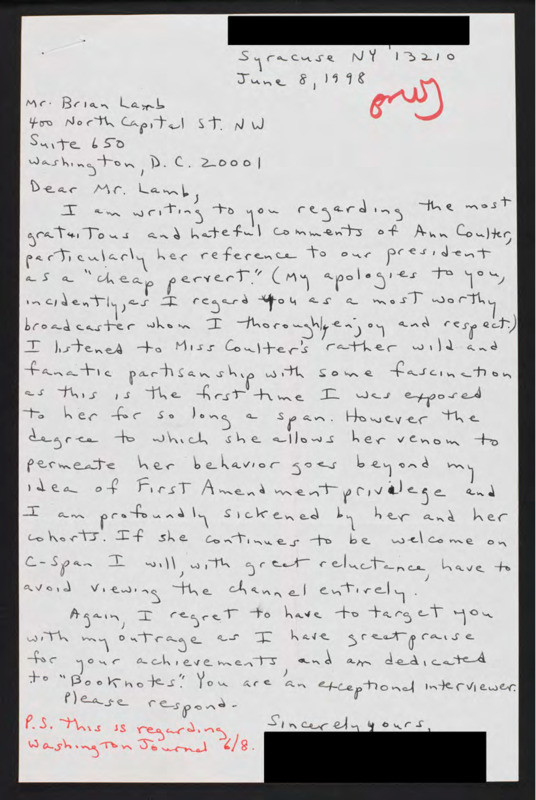 Syracuse NY 13210
June 8, 1998
Mr. Brian Lamb
400 North Capitol St. NW
Suite 650
Washington, D.C. 20001
Dear Mr. Lamb,
I am writing to you regarding the most
gratuitous and hateful comments of Ann Coulter,
particularly her reference to our president
as a "cheap pervert." (My apologies to you,
incidently, as I regard you as a most worthy
broadcaster whom I thoroughly enjoy and respect.)
I listened to Miss Coulter's rather wild and
fanatic partisanship with some fascination
as this is the first time I was exposed
to her for so long a span. However the
degree to which she allows her venom to
permeate her behavior goes beyond my
idea of First Amendment privelege and
I am profoundly sickened by her and her
cohorts. If she continues to be welcome on
C-Span I will, with great reluctance, have to
avoid viewing the channel entirely.
Again, I regret to have to target you
with my outrage as I have great praise
for your achievements, and am dedicated
to "Booknotes." You are an exceptional interviewer.
Please respond.
Sincerely yours,
P.S. This is regarding
Washington Journal 6/8.